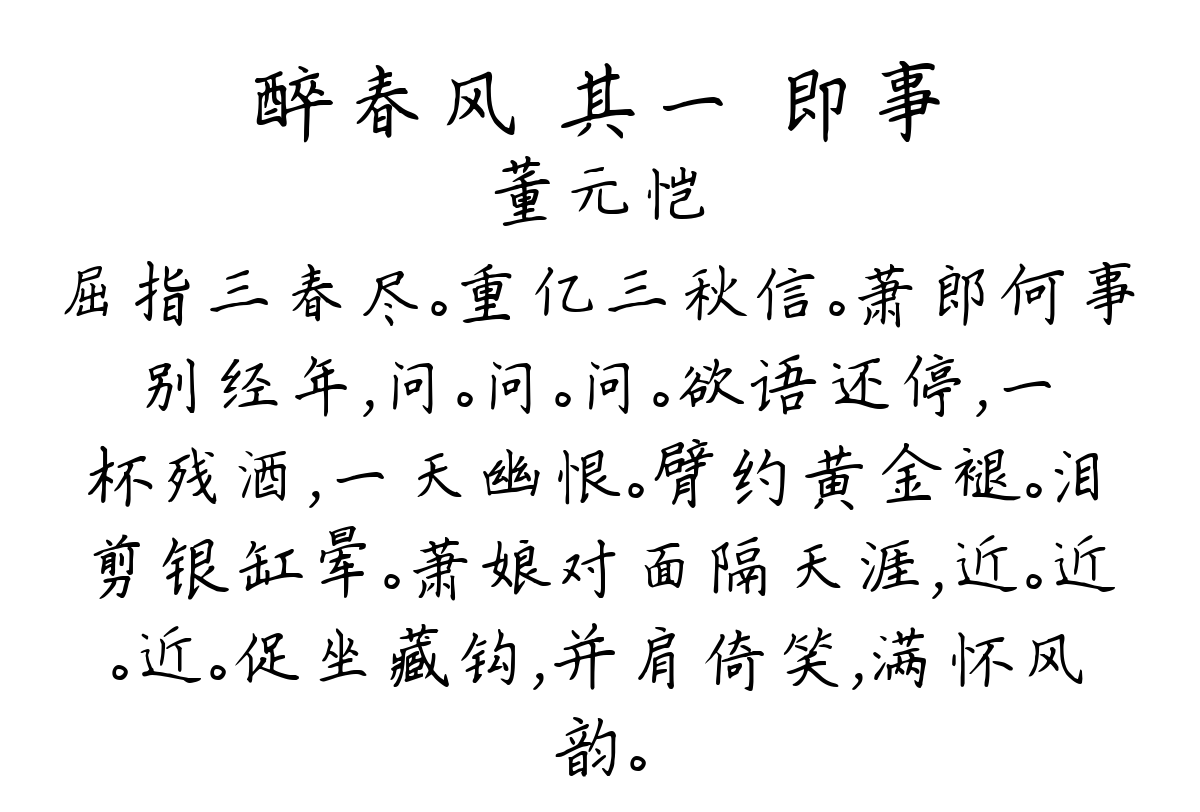 醉春风 其一 即事
董元恺
屈指三春尽。重亿三秋信。萧郎何事
别经年,问。问。问。欲语还停,一
杯残酒,一天幽恨。臂约黄金褪。泪
剪银缸晕。萧娘对面隔天涯,近。近
。近。促坐藏钩,并肩倚笑,满怀风
韵。